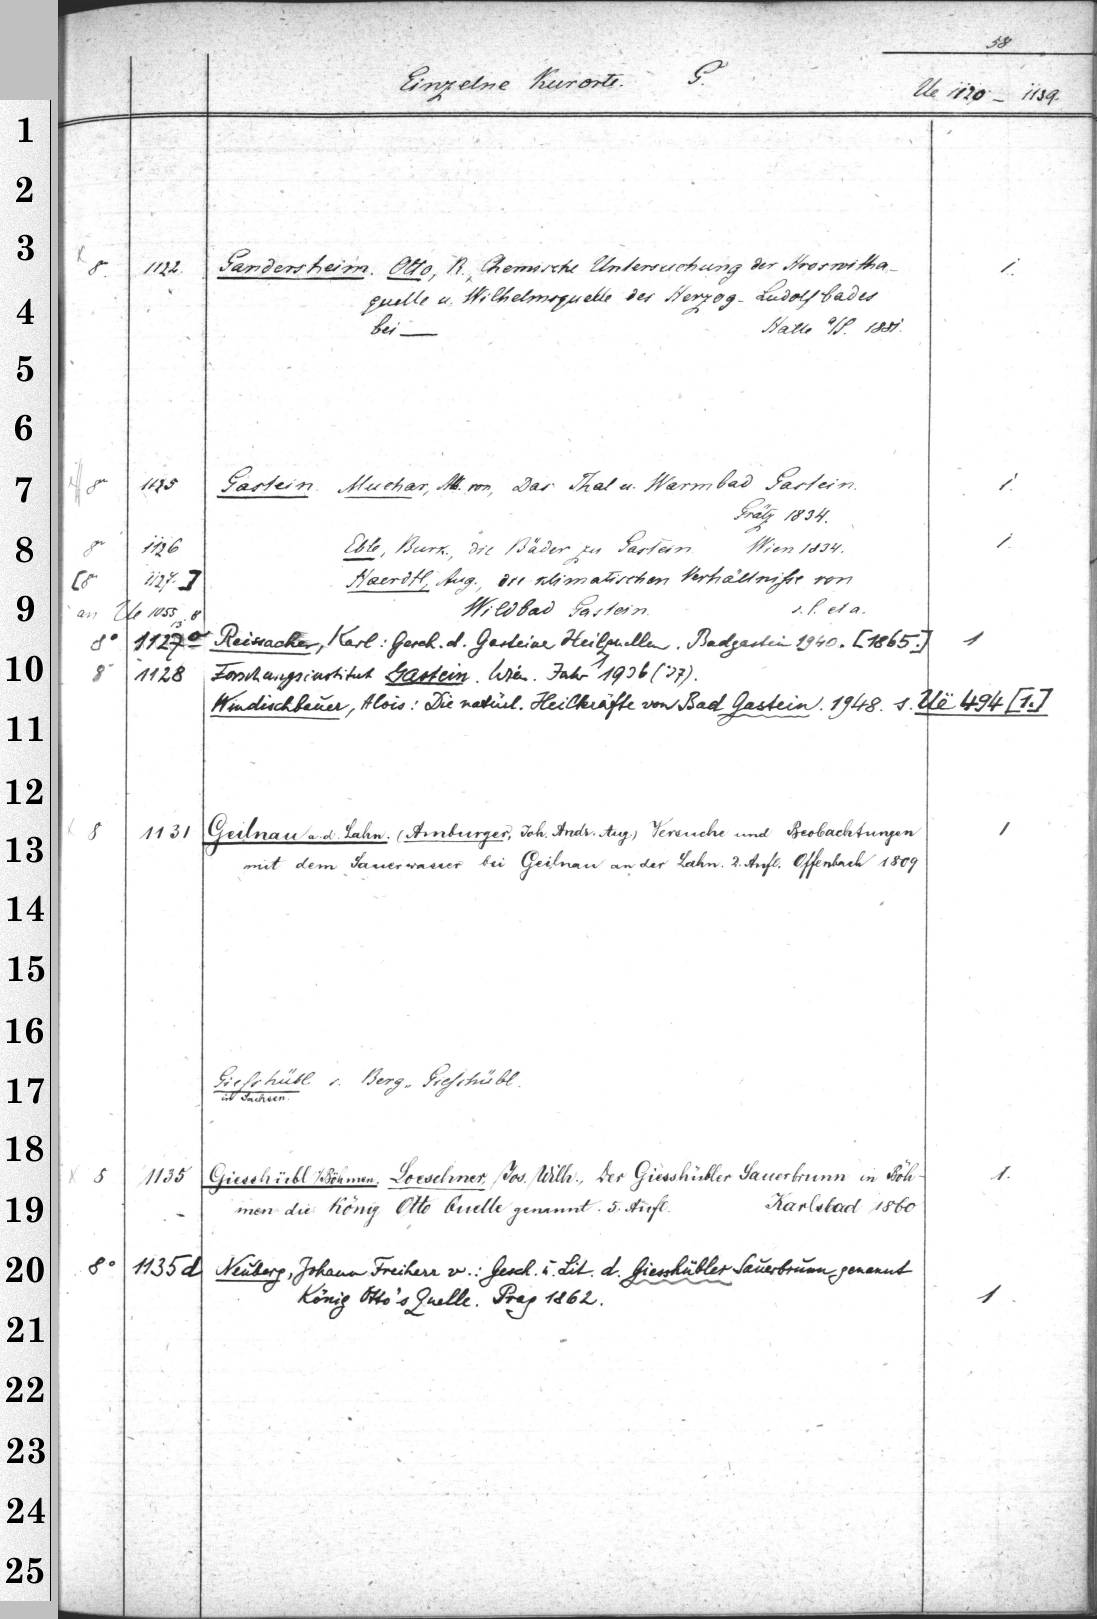 58
Einzelne Kurorte. G.
Ue 1120 - 1139.
1
2
3
8. 1122. Gandersheim. Otto, R., Chemische Untersuchung der Hroswitha- 1.
quelle u. Wilhelmsquelle des Herzog-Ludolfbades
4
bei — Halle a/S. 1881.
5
6
7
8° 1125 Gastein. Muchar, Alb. von, Das Thal u. Warmbad Gastein. 1.
Grätz 1834.
8
8° 1126 Eble, Burk., die Bäder zu Gastein Wien 1834. 1.
[8 1127.] Haerdtl, Aug., die klimatischen Verhältnisse von
9
an Ue 1055, 8 Wildbad Gastein s. l. et a.
13
8° 1127a Reissacher, Karl: Gesch. d. Gasteiner Heilquellen. Badgastein 1940. [1865.] 1
10
8° 1128 Forschungsinstitut Gastein. Wien. Jahr 1936 (37).
Windischbauer, Alois: Die natürl. Heilkräfte von Bad Gastein. 1948. s. Uë 494 [1.]
11
12
13
8 1131 Geilnau a. d. Lahn. (Amburger, Joh. Andr. Aug.) Versuche und Beobachtungen 1
mit dem Sauerwasser bei Geilnau an der Lahn. 2. Aufl. Offenbach 1809
14
15
16
17
Giesshübl s. Berg-Giesshübl.
in Sachsen.
18
8 1135 Giesshübl i/Böhmen. Loeschner, /Jos./ Wilh., Der Giesshübler Sauerbrunn in Böh- 1.
19
men die König Otto Quelle genannt. 5. Aufl. Karlsbad 1860
20
8° 1135d Neuberg, Johann Freiherr v.: Gesch. u. Lit. d. Giesshübler Sauerbrunn genannt
König Otto's Quelle. Prag 1862. 1
21
22
23
24
25